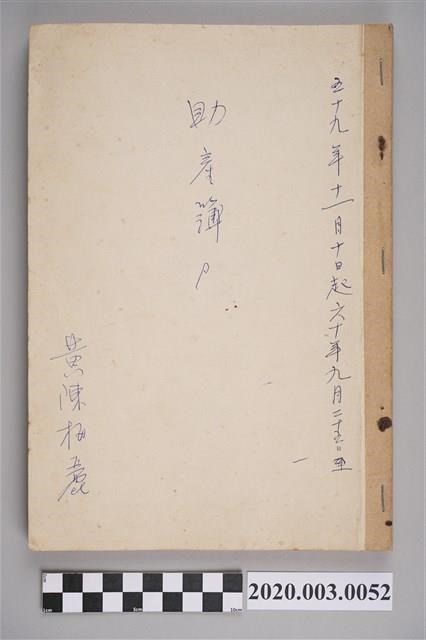 五十九年十一月十日起六十年九月二十五日至
助產簿
黃陳梅麗
1cm 5cm 10cm
2020.003.0052